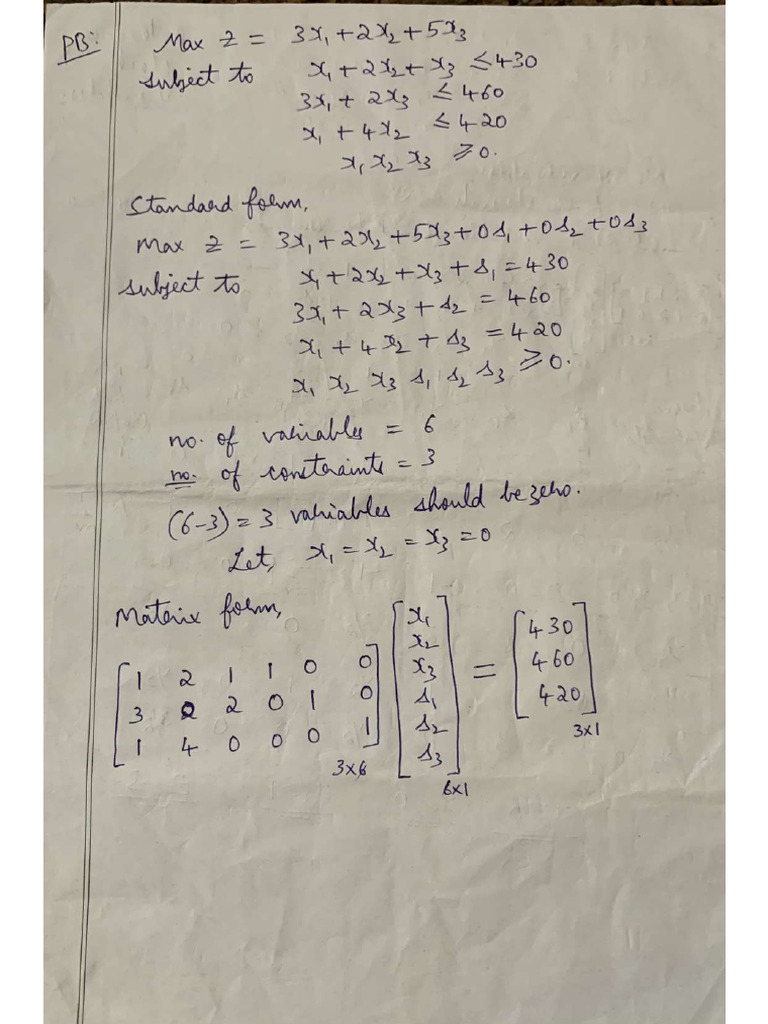 PB: Max Z = 3x₁ + 2x₂ + 5x₃
subject to x₁ + 2x₂ + x₃ ≤ 430
3x₁ + 2x₃ ≤ 460
x₁ + 4x₂ ≤ 420
x₁ x₂ x₃ ⩾ 0.
Standard form,
Max Z = 3x₁ + 2x₂ + 5x₃ + 0s₁ + 0s₂ + 0s₃
subject to x₁ + 2x₂ + x₃ + s₁ = 430
3x₁ + 2x₃ + s₂ = 460
x₁ + 4x₂ + s₃ = 420
x₁ x₂ x₃ s₁ s₂ s₃ ⩾ 0.
no. of variables = 6
no. of constraints = 3
(6-3) = 3 variables should be zero.
Let, x₁ = x₂ = x₃ = 0
Matrix form,
[1 2 1 1 0 0] [x₁ x₂ x₃ s₁ s₂ s₃] = [430 460 420]
3 2 0 1 0
1 4 0 0 0 1
3x6 6x1 3x1